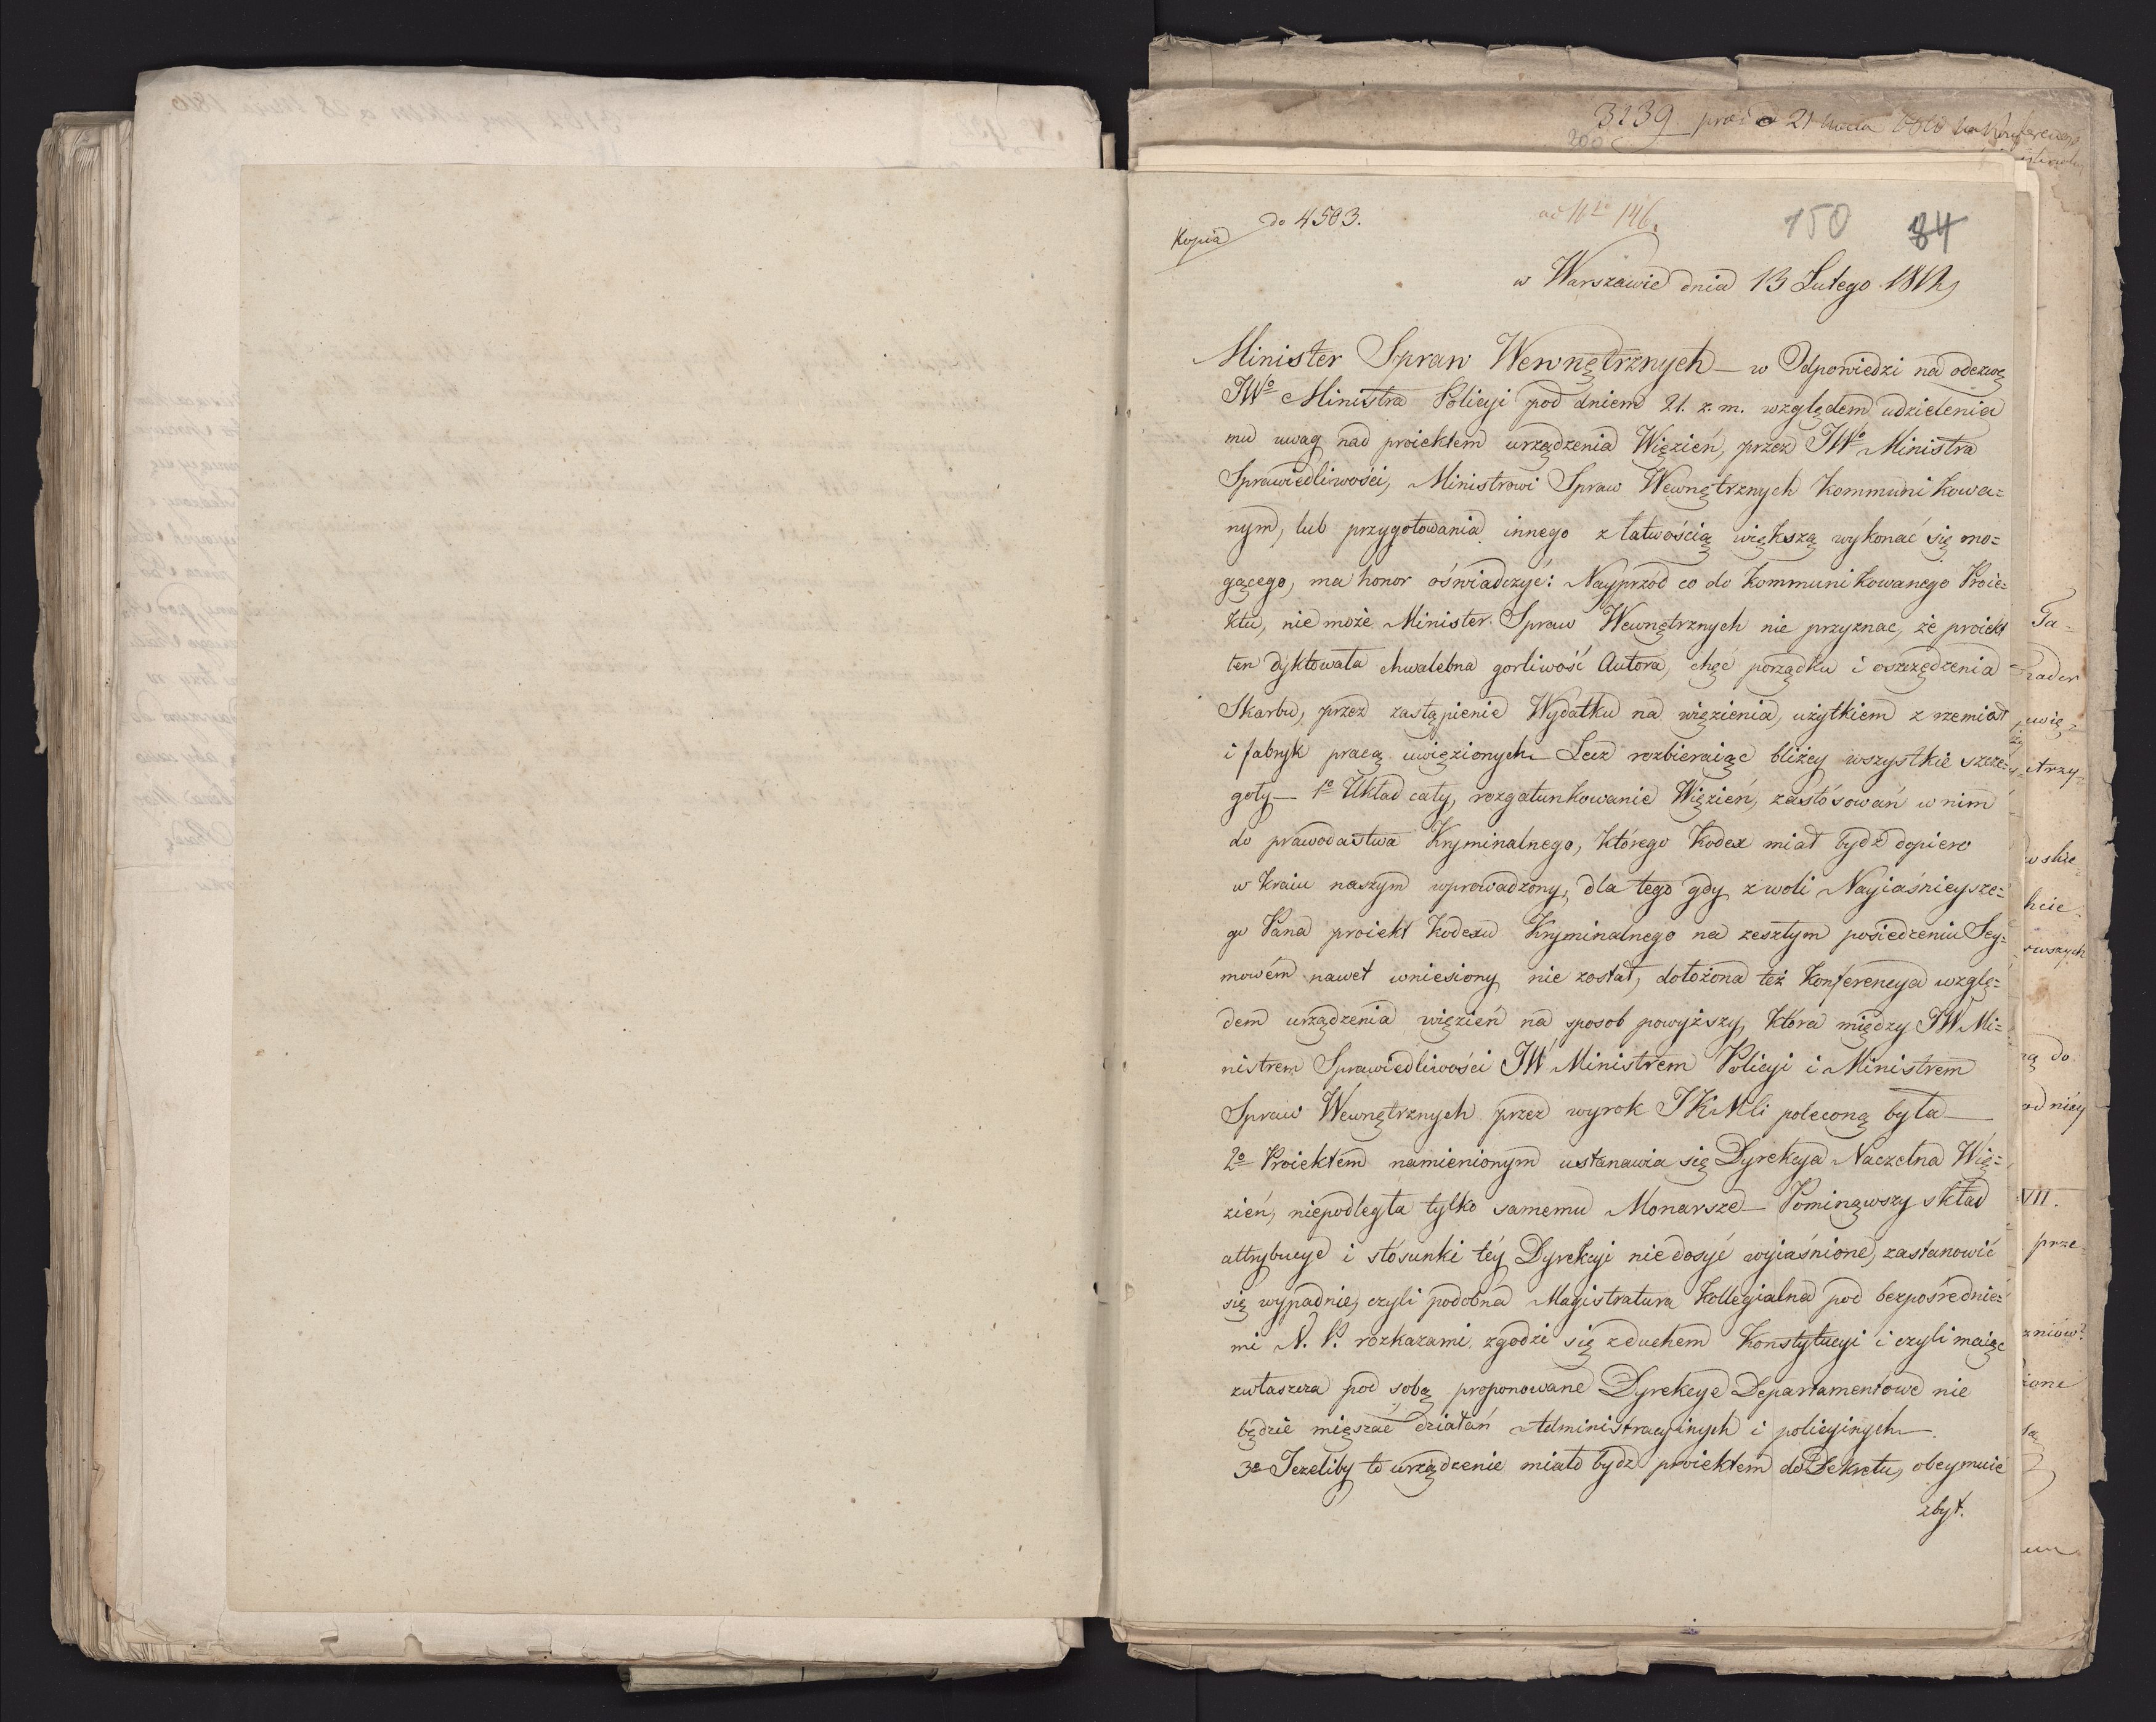 3239
200
Kopia do 4503.
ad N 146.
150 84
w Warszawie dnia 13 Lutego 1812
Minister Spraw Wewnętrznych – w Odpowiedzi na odezwę
JWo Ministra Policyi pod dniem 21. z. m. względem udzielenia
mu uwag nad proiektem urządzenia Więzień, przez JWo Ministra
Sprawiedliwości, Ministrowi Spraw Wewnętrznych kommunikowa=
nym, lub przygotowania innego z łatwością większą wykonać się mo=
gącego, ma honor oświadczyć: Nayprzód co do kommunikowanego Proie=
ktu, nie może Minister Spraw Wewnętrznych nie przyznać, że proiekt
ten dyktowała chwalebna gorliwość Autora, chęć porządku i oszczędzenia
Skarbu, przez zastąpienie Wydatku na więzienia, użytkiem z rzemiosł
i fabryk pracą uwięzionych – Lecz rozbieraiąc bliżey wszystkie szcze=
goły – 1o Układ cały, rozgatunkowanie Więzień, zastósowań w nim
do prawodastwa Kryminalnego, którego Kodex miał bydź dopiero
w kraiu naszym wprowadzony, dla tego gdy z woli Nayiaśnieysze=
go Pana proiekt Kodexu Kryminalnego na zeszłym posiedzeniu Sey=
mowém nawet wniesiony nie został, dołożona też Konferencya wzglę=
dem urządzenia więzień na sposob powyższy, która między JW Mi=
nistrem Sprawiedliwości JW Ministrem Policyi i Ministrem
Spraw Wewnętrznych przez wyrok JKMci poleconą była –
2o Proiektem namienionym ustanawia się Dyrekcya Naczelna Wię=
zień, niepodległa tylko samemu Monarsze – Pominąwszy skład
attrybucye i stósunki téy Dyrekcyi niedosyć wyiaśnione, zastanowić
się wypadnie, czyli podobna Magistratura Kollegialna pod bezpośrednie=
mi N. P. rozkazami zgodzi się z duchem Konstytucyi i czyli maiąc
zwłaszcza pod sobą proponowane Dyrekcye Departamentowe nie
będzie mięszać działań Administracyinych i policyinych –
3o Jeżeliby to urządzenie miało bydź proiektem do Dekretu, obeymuie
zbyt.